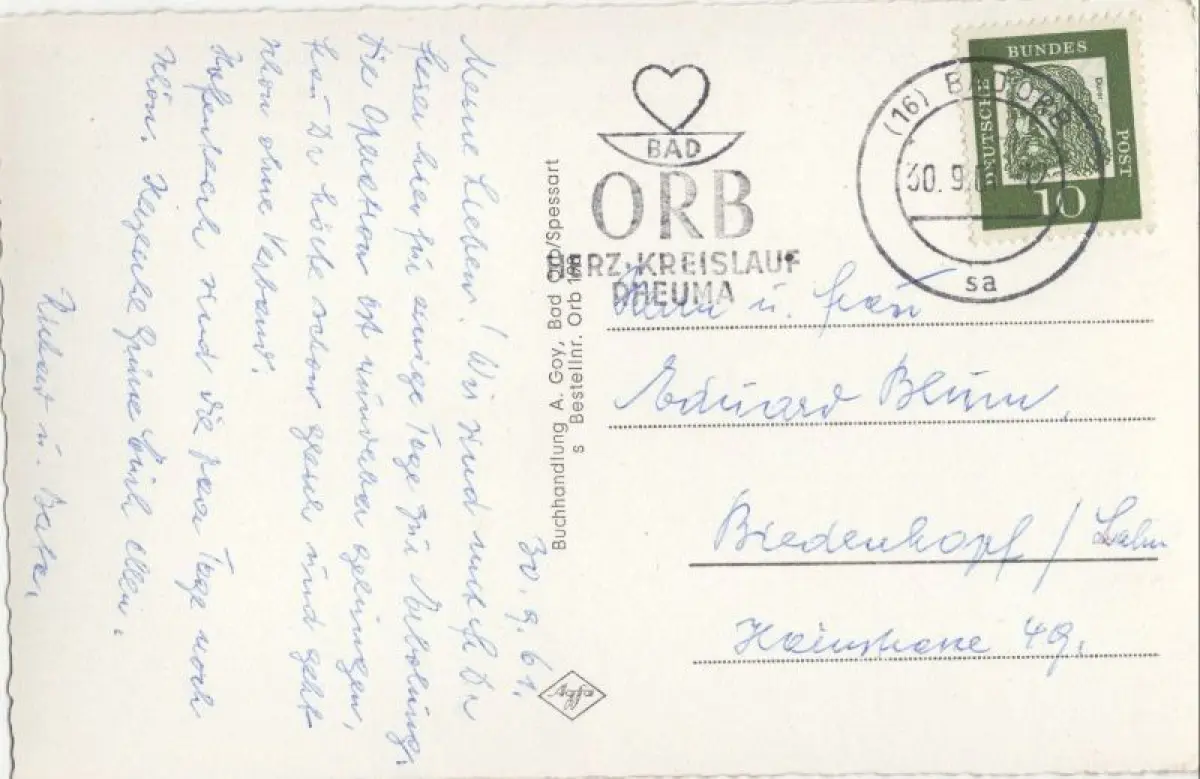 30. 9. 61.
Meine Lieben! Wir sind mit
hier für einige Tage zur Erholung.
Die Operation ist gelungen,
Dr. schon und geht
schon ohne Verband.
Hoffentlich sind die paar Tage noch
schön. Herzliche Grüße Euch allen.
u.
Buchhandlung A. Goy, Bad Orb/Spessart
s Bestellnr. Orb
Agfa
BAD
ORB
HERZ-KREISLAUF
RHEUMA
(16) BAD ORB
30. 9. 61
sa
DEUTSCHE BUNDESPOST
Dürer
10
Herrn u. Frau
Eduard Blum
Biedenkopf / Lahn
Hainstrasse 49.